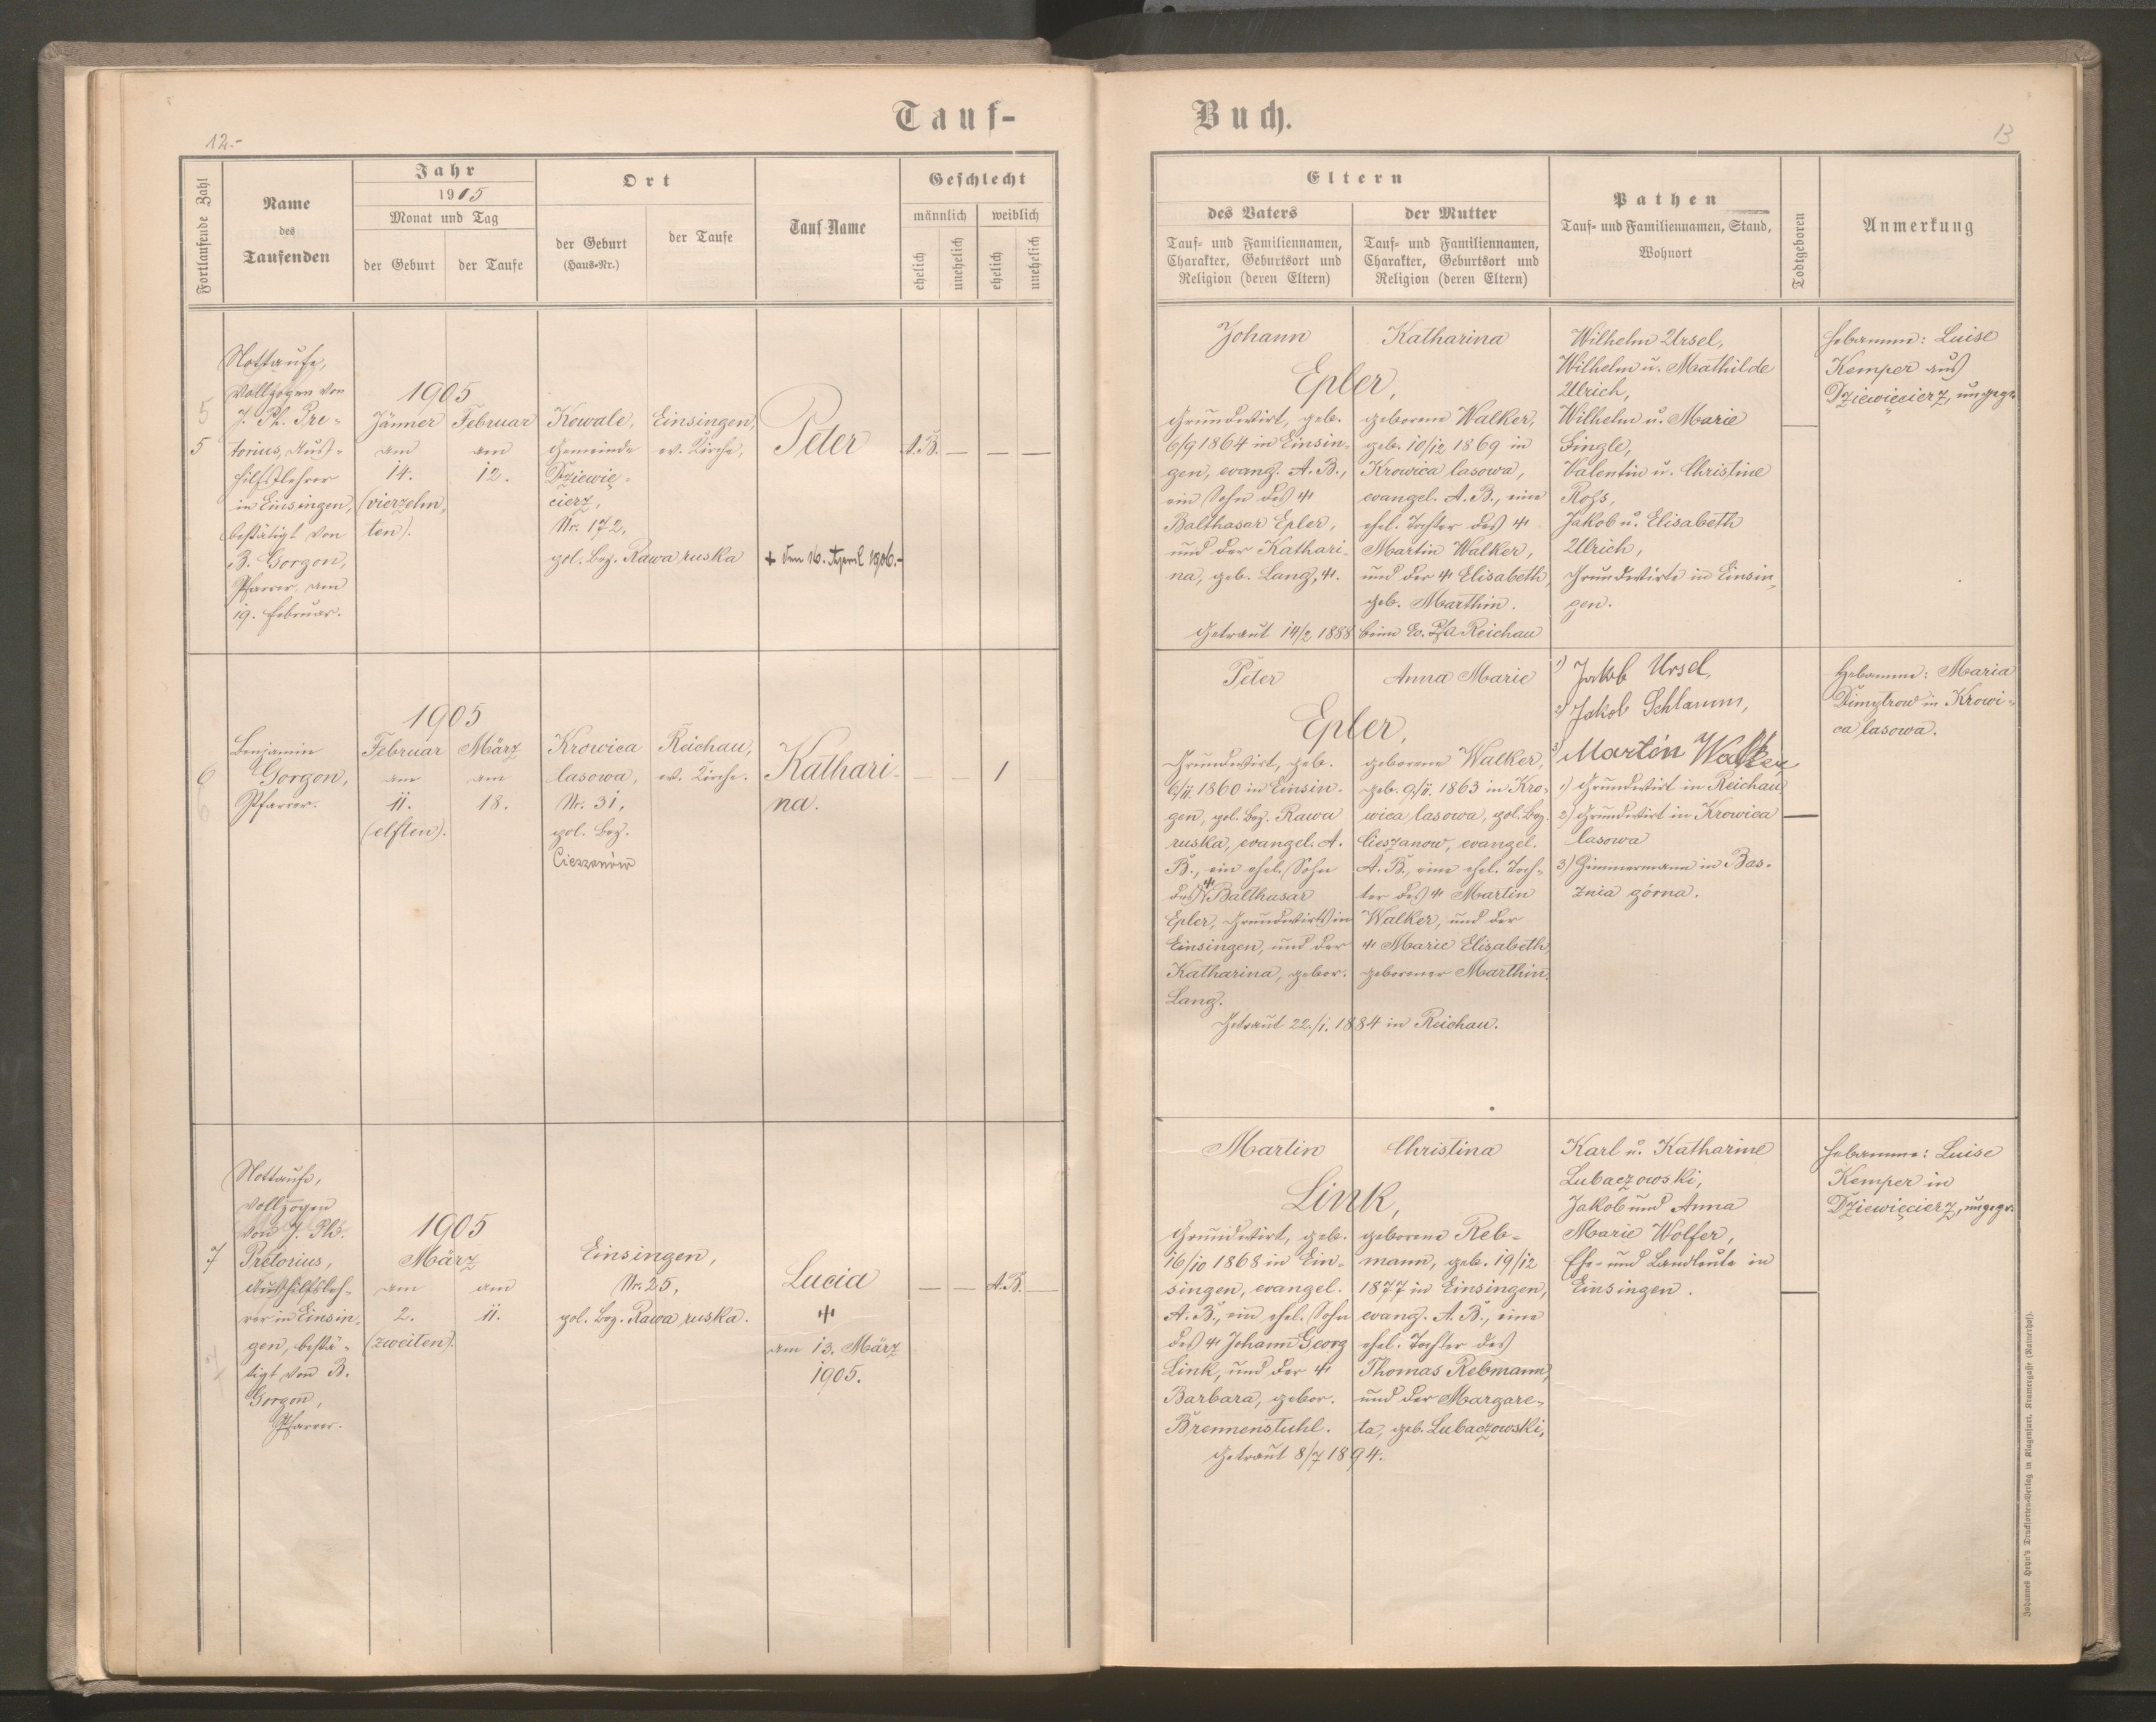 Tauf-
12.-
Fortlaufende Zahl
Name
des
Taufenden
Jahr
1905
Monat und Tag
der Geburt
der Taufe
Ort
der Geburt
(Haus-Nr.)
der Taufe
Tauf-Name
Geschlecht
männlich
weiblich
ehelich
unehelich
ehelich
unehelich
5
5
Nottaufe,
vollzogen von
J. Ph. Pre-
torius, Aus-
hilfslehrer
in Einsingen,
bestätigt von
B. Gorgon,
Pfarrer, am
19. Februar.
1905
Jänner
am
14.
(vierzehn-
ten).
Februar
am
12.
Kowale,
Gemeinde
Dziewię-
cierz,
Nr. 172,
pol. Bez. Rawa ruska
Einsingen,
ev. Kirche,
Peter
+ den 16. April 1906.-
A.B. — — —
6
6
Benjamin
Gorgon,
Pfarrer.
1905
Februar
am
11.
(elften).
März
am
18.
Krowica
lasowa,
Nr. 31,
pol. Bez.
Cieszanów
Reichau,
ev. Kirche.
Kathari-
na.
— — 1
7
7
Nottaufe,
vollzogen
von J. Ph.
Pretorius,
Aushilfsleh-
rer in Einsin-
gen, bestä-
tigt von B.
Gorgon,
Pfarrer.
1905
März
am
2.
(zweiten).
am
11.
Einsingen,
Nr. 25,
pol. Bez. Rawa ruska.
Lucia
+
am 13. März
1905.
— — A.B. —
Buch.
13
Eltern
des Vaters
Tauf- und Familiennamen,
Charakter, Geburtsort und
Religion (deren Eltern)
der Mutter
Tauf- und Familiennamen,
Charakter, Geburtsort und
Religion (deren Eltern)
Pathen
Tauf- und Familiennamen, Stand,
Wohnort
Todtgeboren
Anmerkung
Johann
Katharina
Epler,
Grundwirt, geb.
6/9 1864 in Einsin-
gen, evang. A. B.,
ein Sohn des +
Balthasar Epler,
und der Kathari-
na, geb. Lang, +.
geborene Walker,
geb. 10/12 1869 in
Krowica lasowa,
evangel. A. B., eine
ehel. Tochter des +
Martin Walker,
und der + Elisabeth,
geb. Marthin.
Getraut 14/2 1888 beim ev. Pfa Reichau
Wilhelm Ursel,
Wilhelm u. Mathilde
Ulrich,
Wilhelm u. Marie
Single,
Valentin u. Christine
Rohs,
Jakob u. Elisabeth
Ulrich,
Grundwirte in Einsin-
gen.
Hebamme: Luise
Kemper aus
Dziewięcierz, ungepr.
Peter
Anna Marie
Epler,
Grundwirt, geb.
6/11. 1860 in Einsin-
gen, pol. Bez. Rawa
ruska, evangel. A.
B., ein ehel. Sohn
des + Balthasar
Epler, Grundwirts in
Einsingen, und der
Katharina, gebor.
Lang.
geborene Walker,
geb. 9./11. 1863 in Kro-
wica lasowa, pol. Bez.
Cieszanow, evangel.
A. B., eine ehel. Toch-
ter des + Martin
Walker, und der
+ Marie Elisabeth,
geborener Marthin.
Getraut 22./1. 1884 in Reichau.
1) Jakob Ursel,
2) Jakob Schlamm,
3) Martin Walker
1) Grundwirt in Reichau,
2) Grundwirt in Krowica
lasowa
3) Zimmermann in Bas-
znia górna.
—
Hebamme: Maria
Dimytrow in Krowi-
ca lasowa.
Martin
Christina
Link,
Grundwirt, geb.
16/10 1868 in Ein-
singen, evangel.
A. B., ein ehel. Sohn
des + Johann Georg
Link, und der +
Barbara, gebor.
Brennenstuhl.
geborene Reb-
mann, geb. 19/12
1877 in Einsingen,
evang. A. B., eine
ehel. Tochter des
Thomas Rebmann,
und der Margare-
ta, geb. Lubaczowski,
Getraut 8/7 1894.
Karl u. Katharine
Lubaczowski,
Jakob und Anna
Marie Wolfer,
Ehe- und Landleute in
Einsingen.
—
Hebamme: Luise
Kemper in
Dziewięcierz, ungepr.
Johannes Heyn's Drucksorten-Verlag in Klagenfurt, Kramergasse (Rainerhof).